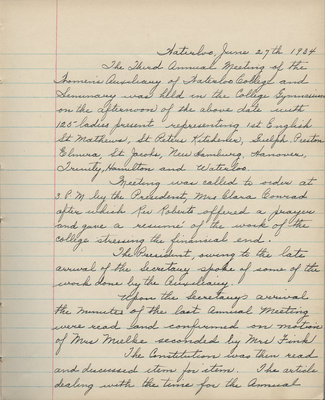 Waterloo, June 27th 1934
The Third Annual Meeting of the
Womens Auxiliary of Waterloo College and
Seminary was held in the College Gymnasium
on the afternoon of the above date with
125 ladies present representing 1st English
St Mathews, St Peters Kitchener, Guelph, Preston
Elmira, St Jacobs, New Hamburg, Hanover,
Trinity Hamilton and Waterloo.
Meeting was called to order at
3 P.M by the President, Mrs Clara Conrad
after which Rev Roberts offered a prayer
and gave a resume of the work of the
college stressing the financial end.
The President, owing to the late
arrival of the Secretary spoke of some of the
work done by the Auxiliary.
Upon the Secretarys arrival
the minutes of the last Annual Meeting
were read and confirmed on motion
of Mrs Mielke seconded by Mrs Fink
The Constitution was then read
and discussed item for item. The article
dealing with the time for the Annual